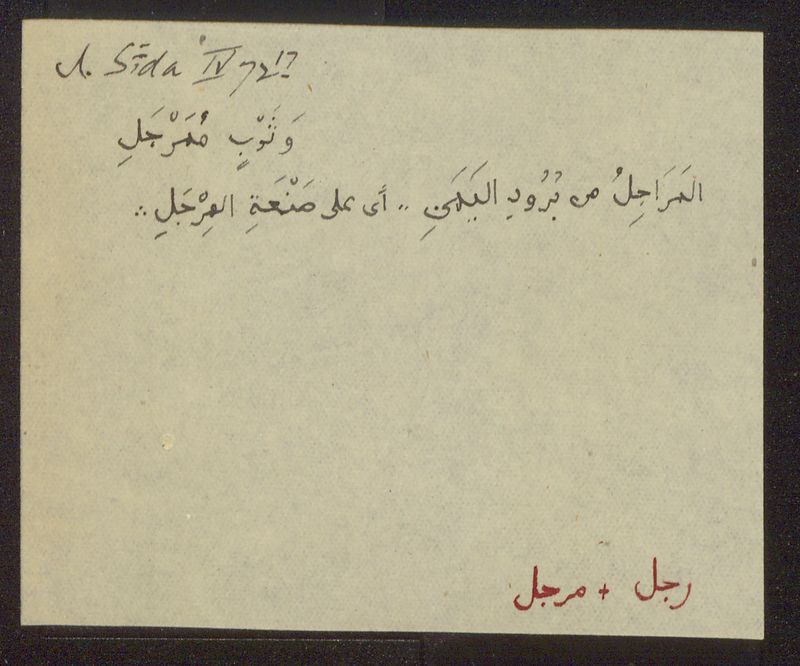 I. Sīda IV 72 17
وَثَوْبٍ مُمَرْجَلِ
المَرَاجِلُ من بُرُودِ اليَمَنِ .. أى على صَنْعَةِ المِرْجَلِ ∴
رجل + مرجل